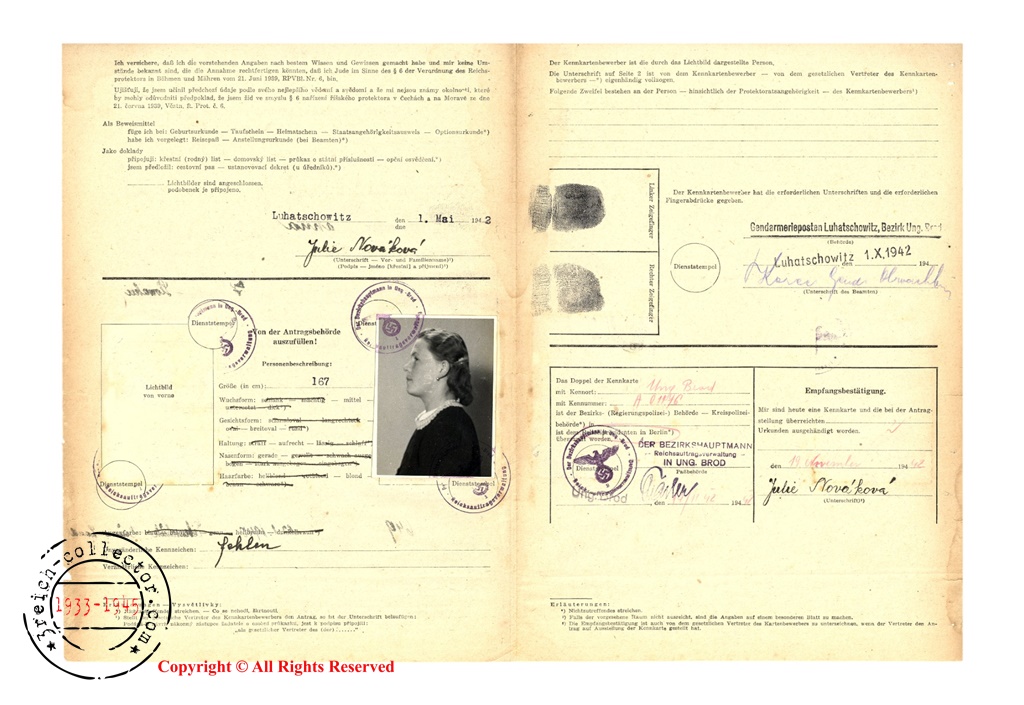 Ich versichere, daß ich die vorstehenden Angaben nach bestem Wissen und Gewissen gemacht habe und mir keine Um-
stände bekannt sind, die die Annahme rechtfertigen könnten, daß ich Jude im Sinne des § 6 der Verordnung des Reichs-
protektors in Böhmen und Mähren vom 21. Juni 1939, RPVBl. Nr. 6, bin.
Ujišťuji, že jsem učinil předchozí údaje podle svého nejlepšího vědomí a svědomí a že mi nejsou známy okolnosti, které
by mohly odůvodniti předpoklad, že jsem žid ve smyslu § 6 nařízení říšského protektora v Čechách a na Moravě ze dne
21. června 1939, Věstn. ř. Prot. č. 6.
Als Beweismittel
füge ich bei: Geburtsurkunde — Taufschein — Heimatschein — Staatsangehörigkeitsausweis — Optionsurkunde*)
habe ich vorgelegt: Reisepaß — Anstellungsurkunde (bei Beamten)*)
Jako doklady
připojuji: křestní (rodný) list — domovský list — průkaz o státní příslušnosti — opční osvědčení.*)
jsem předložil: cestovní pas — ustanovovací dekret (u úředníků).*)
Lichtbilder sind angeschlossen.
podobenek je připojeno.
Luhatschowitz den 1. Mai 1942
dne
Julie Nováková
(Unterschrift — Vor- und Familienname²)
(Podpis — jméno [křestní] a příjmení)²)
Dienststempel
Von der Antragsbehörde
auszufüllen!
Dienststempel
Lichtbild
von vorne
Personenbeschreibung:
Größe (in cm): 167
Wuchsform: schlank — schmächtig — mittel —
untersetzt — dick*)
Gesichtsform: schmaloval — langrechteck
oval — breitoval — rund*)
Haltung: straff — aufrecht — lässig — schlaff*)
Nasenform: gerade —
Haarfarbe: hellblond — blond
Dienststempel
Dienststempel
Reichsauftragsverwaltung
Unveränderliche Kennzeichen: fehlen
Veränderliche Kennzeichen:
Erläuterungen — Vysvětlivky:
„als gesetzlicher Vertreter des (der) ......"
Der Kennkartenbewerber ist die durch das Lichtbild dargestellte Person.
Die Unterschrift auf Seite 2 ist von dem Kennkartenbewerber — von dem gesetzlichen Vertreter des Kennkarten-
bewerbers —*) eigenhändig vollzogen.
Folgende Zweifel bestehen an der Person — hinsichtlich der Protektoratsangehörigkeit — des Kennkartenbewerbers¹)
Linker Zeigefinger
Rechter Zeigefinger
Der Kennkartenbewerber hat die erforderlichen Unterschriften und die erforderlichen
Fingerabdrücke gegeben.
Gendarmerieposten Luhatschowitz, Bezirk Ung. Brod
(Behörde)
Dienststempel
Luhatschowitz den 1.X.1942 194
(Unterschrift des Beamten)
Das Doppel der Kennkarte
mit Kennort: Ung. Brod
mit Kennnummer:
ist der Bezirks- (Regierungspolizei-) Behörde — Kreispolizei-
behörde*) in
ist dem Polizeipräsidenten in Berlin*)
übersandt worden.
DER BEZIRKSHAUPTMANN
- Reichsauftragsverwaltung -
IN UNG. BROD
Paßbehörde
Dienststempel
Ung. Brod, den 194
Empfangsbestätigung.
Mir sind heute eine Kennkarte und die bei der Antrag-
stellung überreichten
Urkunden ausgehändigt worden.
den 19 November 1942
Julie Nováková
(Unterschrift³)
Erläuterungen:
*) Nichtzutreffendes streichen.
¹) Falls der vorgesehene Raum nicht ausreicht, sind die Angaben auf einem besonderen Blatt zu machen.
²) Die Empfangsbestätigung ist auch von dem gesetzlichen Vertreter des Kartenbewerbers zu unterzeichnen, wenn der Vertreter den An-
trag auf Ausstellung der Kennkarte gestellt hat.
3reich-collector.com
1933-1945
Copyright © All Rights Reserved